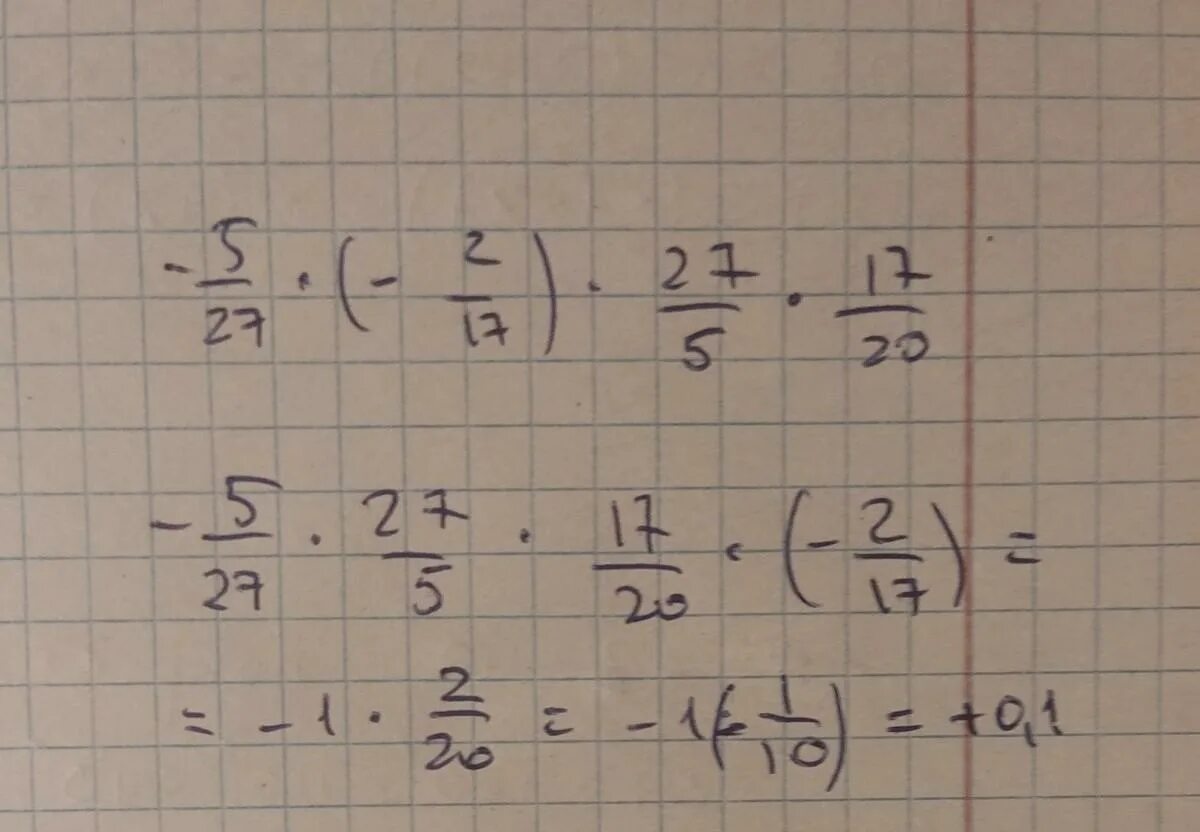 - 5/27 · (- 2/17) · 27/5 · 17/20
- 5/27 · 27/5 · 17/20 · (- 2/17) =
= - 1 · 2/20 = - 1 (- 1/10) = +0,1